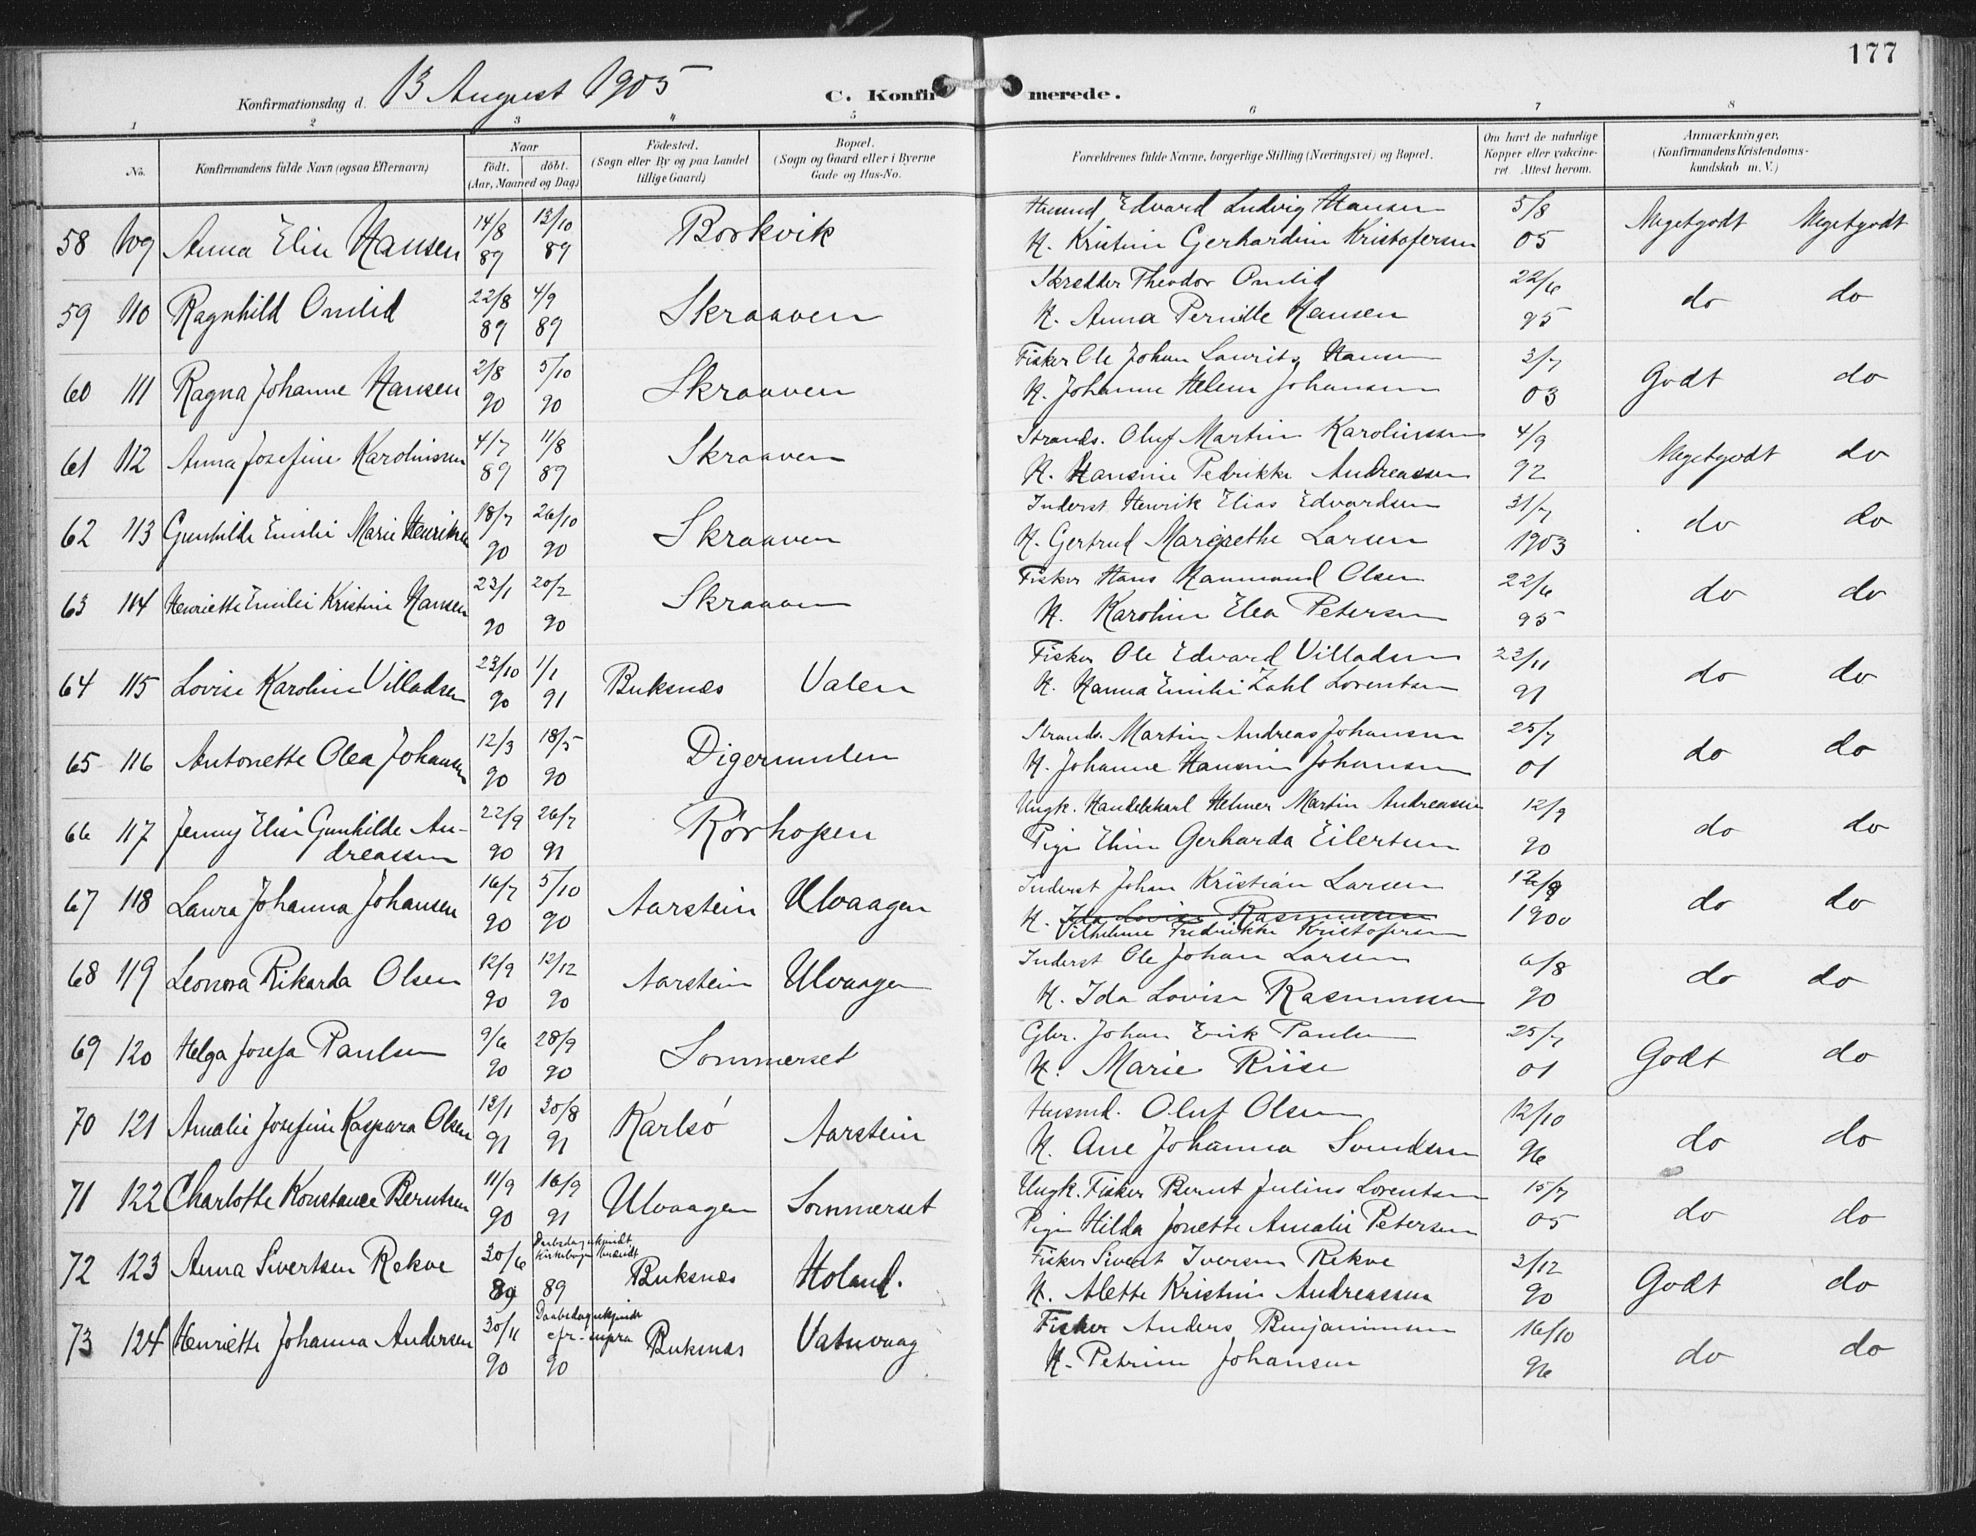 177
Konfirmationsdag d. 13 August 1905
C. Konfirmerede.
1 2 3 4 5 6 7 8
No.
Konfirmandens fulde Navn (ogsaa Efternavn)
Naar
født. døbt.
(Aar, Maaned og Dag)
Fødested.
(Sogn eller By og paa Landet
tillige Gaard)
Bopæl.
(Sogn og Gaard eller i Byerne
Gade og Hus-No.
Forældrenes fulde Navne, borgerlige Stilling (Næringsvei) og Bopæl.
Om havt de naturlige
Kopper eller vakcine-
ret. Attest herom.
Anmærkninger.
(Konfirmandens Kristendoms-
kundskab m. V.)
58 109 Anna Elise Hansen 14/8 89 13/10 89 Borkvik
Husmd Edvard Ludvig Hansen 5/8
H. Kristine Gerhardine Kristofersen 05 Megetgodt Megetgodt
59 110 Ragnhild Omlid 22/8 89 4/9 89 Skraaven
Skrædder Theodor Omlid 22/6
H. Anna Pernille Hansen 95 do do
60 111 Ragna Johanne Hansen 2/8 90 5/10 90 Skraaven
Fisker Ole Johan Laurits Hansen 3/7
H. Johanne Helene Johansen 03 Godt do
61 112 Anna Josefine Karolinssen 4/7 89 11/8 89 Skraaven
Strands. Oluf Martin Karolinssen 4/9
H. Hansine Pedrikke Andreassen 92 Megetgodt do
62 113 Gunhilde Emilie Marie Henriksen 18/7 90 26/10 90 Skraaven
Inderst Henrik Elias Edvardsen 31/7
H. Gertrud Margrethe Larsen 1903 do do
63 114 Henriette Emilie Kristine Hansen 23/1 90 20/2 90 Skraaven
Fisker Hans Hammond Olsen 22/6
H. Karoline Elea Petersen 95 do do
64 115 Lovise Karoline Villadsen 23/10 90 1/1 91 Buksnes Valen
Fisker Ole Edvard Villadsen 23/11
H. Hanna Emilie Zahl Lorentsen 91 do do
65 116 Antonette Olea Johansen 12/3 90 18/5 90 Digermulen
Strands. Martin Andreas Johansen 25/7
H. Johanne Hansine Johansen 01 do do
66 117 Jenny Elise Gunhilde An-
dreassen 22/9 90 26/7 91 Rørhopen
Ungk. Handelskarl Helmer Martin Andreassen 12/9
Pige Eline Gerharda Eilertsen 90 do do
67 118 Laura Johanna Johansen 16/7 90 5/10 90 Aarstein Ulvaagen
Inderst Johan Kristian Larsen 12/9
H. Ida Lovise Rasmussen 1900 do do
Vilhelmine Fredrikke Kristofersen
68 119 Leonora Rikarda Olsen 12/9 90 12/12 90 Aarstein Ulvaagen
Inderst Ole Johan Larsen 6/8
H. Ida Lovise Rasmussen 90 do do
69 120 Helga Josefa Paulsen 9/6 90 28/9 90 Sommerset
Gbr. Johan Erik Paulsen 25/7
H. Marie Riise 01 Godt do
70 121 Amalie Josefine Kaspara Olsen 13/1 91 30/8 91 Karlsø Aarstein
Husmd. Oluf Olsen 12/10
H. Ane Johanna Svendsen 96 do do
71 122 Charlotte Konstance Berntsen 11/9 90 16/9 91 Ulvaagen Sommerset
Ungk. Fisker Bernt Julius Lorentsen 15/7
Pige Hilda Jonette Amalie Petersen 05 do do
72 123 Anna Sivertsen Rekve 30/6 89 Daabsdag ukjendt Kirkebogen brændt 89 Buksnes Holand.
Fisker Sivert Iversen Rekve 3/12
H. Alette Kristine Andreassen 90 Godt do
73 124 Henriette Johanna Andersen 30/11 90 Daabsdag ukjendt cfr. supra 90 Buksnes Vatnvaag
Fisker Anders Benjaminsen 16/10
H. Petrine Johansen 96 do do